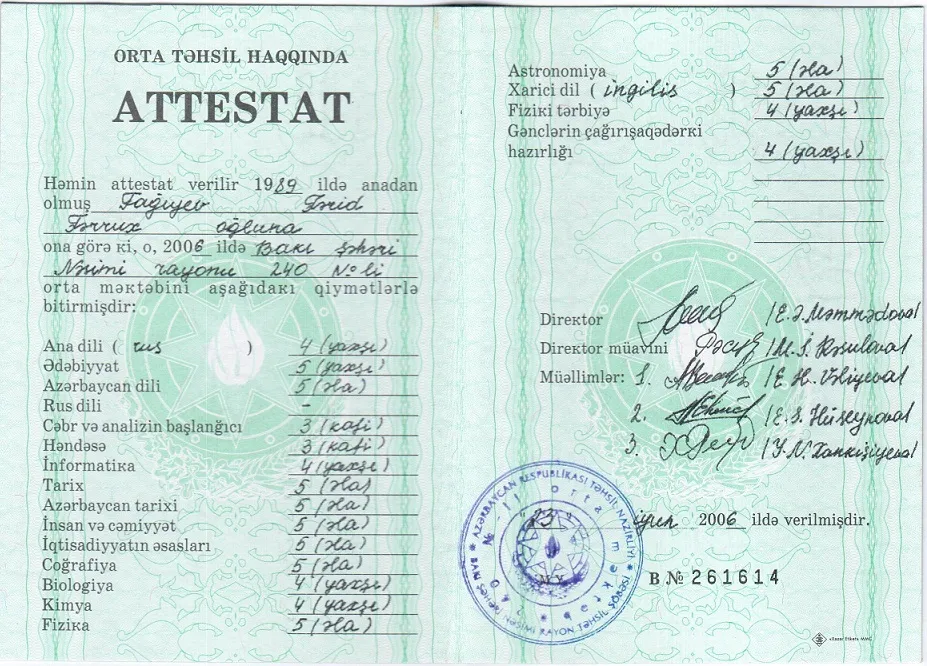 ORTA TƏHSİL HAQQINDA
ATTESTAT
Həmin attestat verilir 1989 ildə anadan
olmuş Tağıyev Fərid
Fərrux oğluna
ona görə ki, o, 2006 ildə Bakı şəhəri
Nəsimi rayonu 240 №li
orta məktəbini aşağıdakı qiymətlərlə
bitirmişdir:
Ana dili ( rus ) 4 (yaxşı)
Ədəbiyyat 5 (yaxşı)
Azərbaycan dili 5 (əla)
Rus dili –
Cəbr və analizin başlanğıcı 3 (kafi)
Həndəsə 3 (kafi)
İnformatika 4 (yaxşı)
Tarix 5 (əla)
Azərbaycan tarixi 5 (əla)
İnsan və cəmiyyət 5 (əla)
İqtisadiyyatın əsasları 5 (əla)
Coğrafiya 5 (əla)
Biologiya 4 (yaxşı)
Kimya 4 (yaxşı)
Fizika 5 (əla)
Astronomiya 5 (əla)
Xarici dil ( ingilis ) 5 (əla)
Fiziki tərbiyə 4 (yaxşı)
Gənclərin çağırışaqədərki
hazırlığı 4 (yaxşı)
Direktor /E.Ə.Məmmədova/
Direktor müavini /M.Ş.Rəsulova/
Müəllimlər: 1. /E.H.Vəliyeva/
2. /E.S.Hüseynova/
3. /Y.N.Xankişiyeva/
"23" iyun 2006 ildə verilmişdir.
M.Y.
AZƏRBAYCAN RESPUBLİKASI TƏHSİL NAZİRLİYİ
NƏSİMİ RAYON TƏHSİL ŞÖBƏSİ
B № 261614